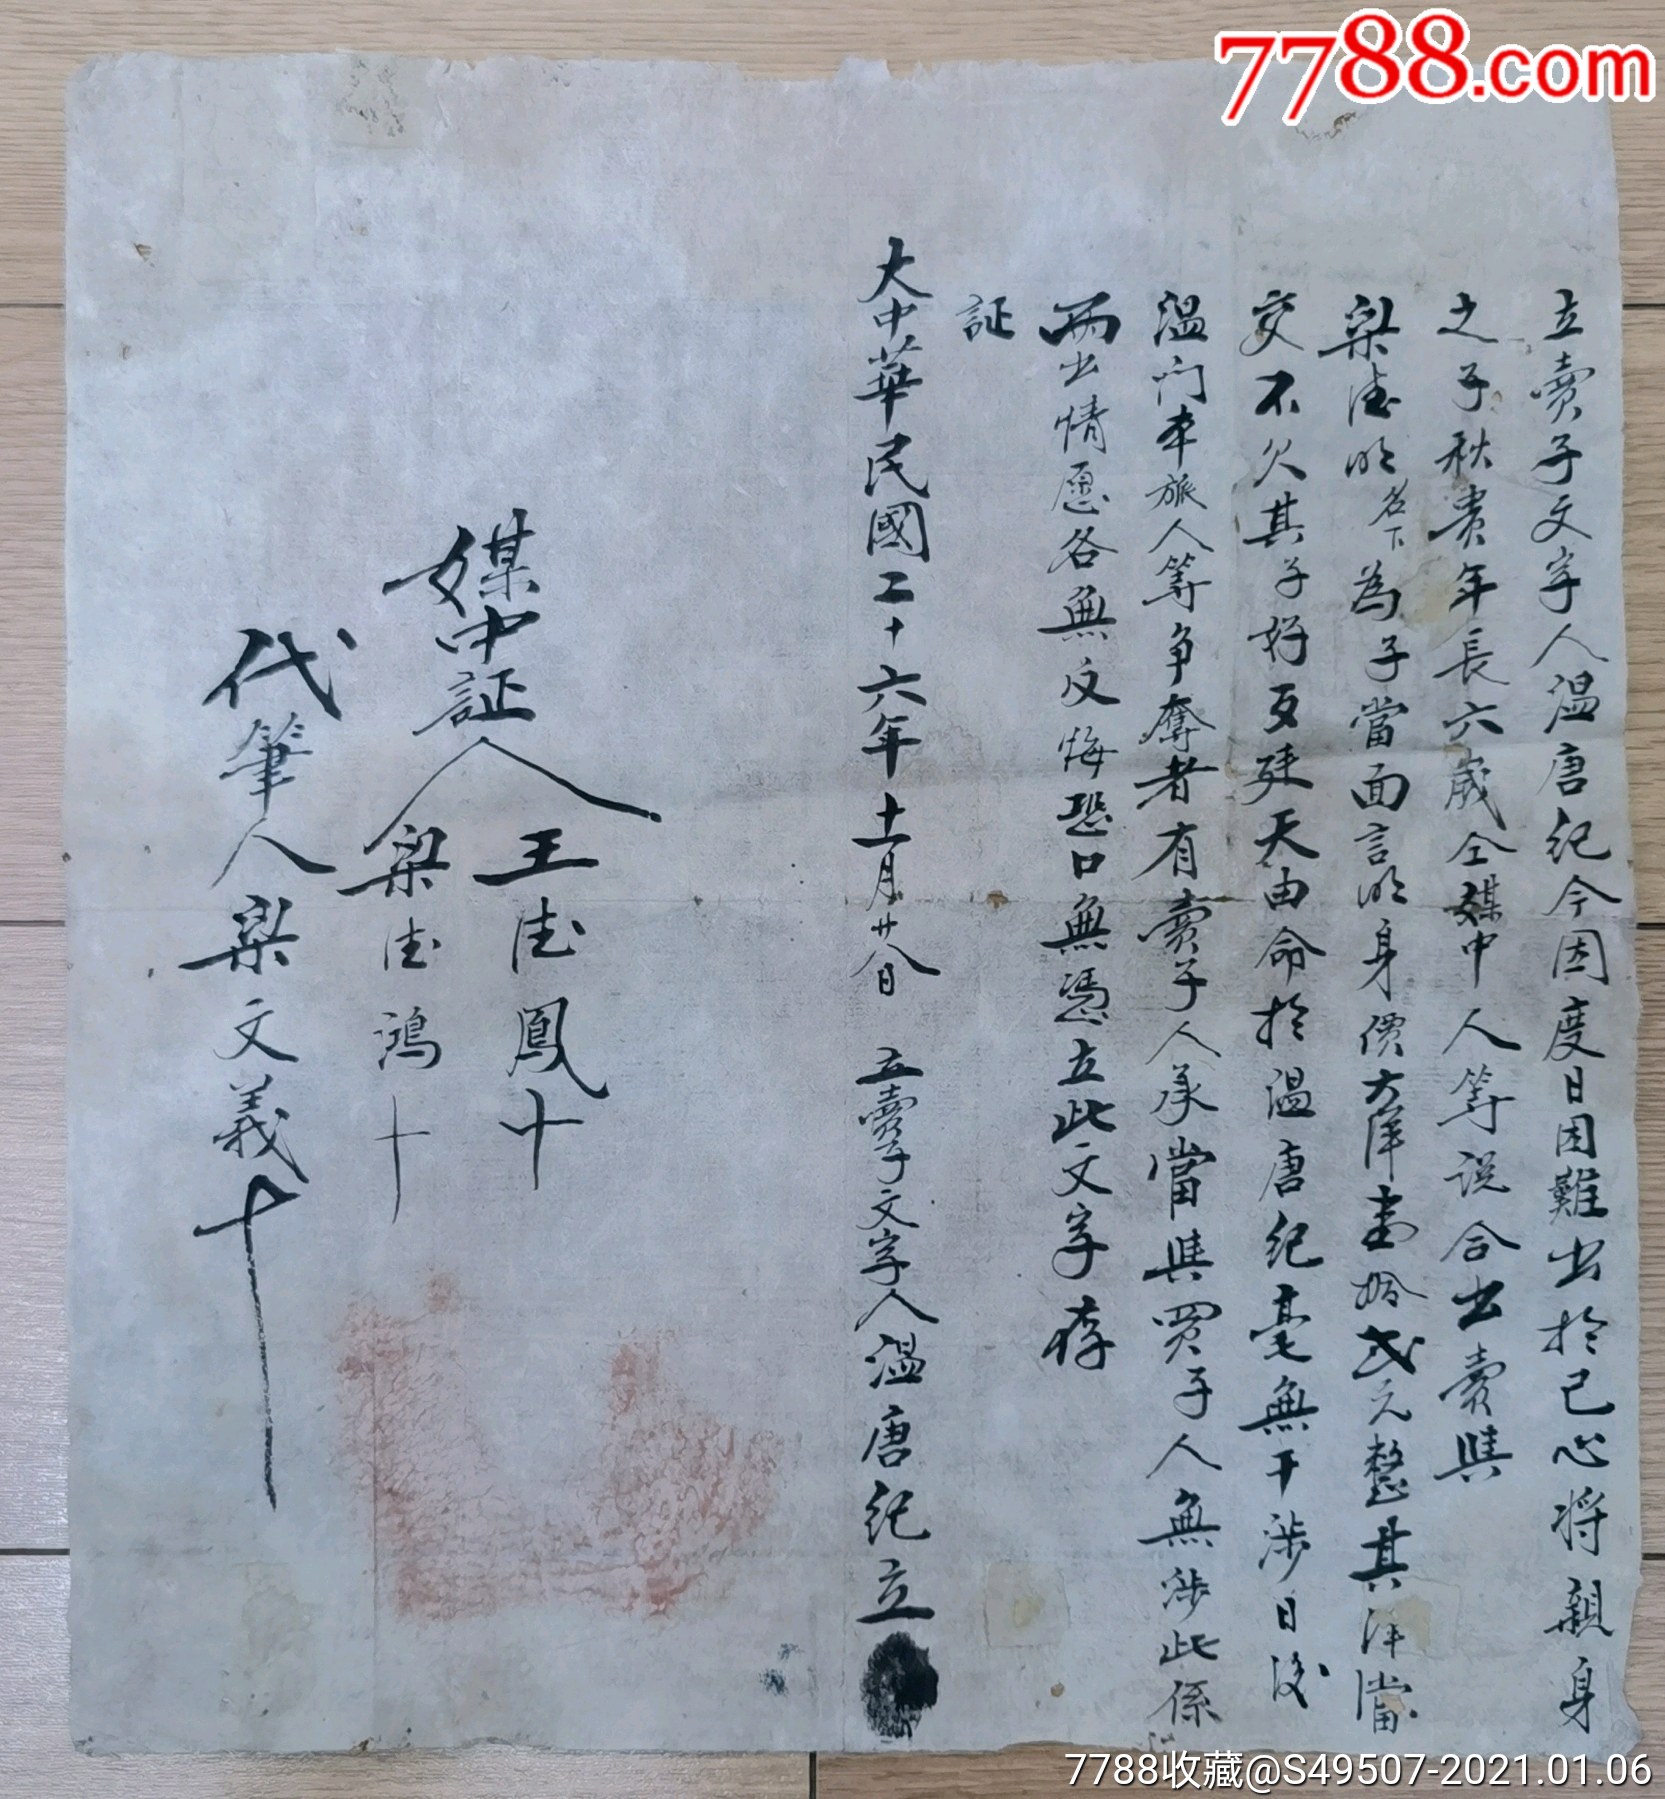 立賣子文字人温唐纪今因度日困難出於己心将親身
之子秋贵年長六歲仝媒中人等说合出賣與
梁德明名下為子當面言明身價大洋壹拾弍元整其洋當
交不欠其子好歹殀天由命於温唐纪毫無干涉日後
温门本族人等争奪者有賣子人承當與買子人無涉此係
兩出情愿各無反悔恐口無憑立此文字存
証
大中華民國二十六年十一月廿八日 立賣子文字人温唐纪立
媒中証人 王德鳳十
梁德鴻十
代筆人梁文義十
7788.com
7788收藏@S49507-2021.01.06